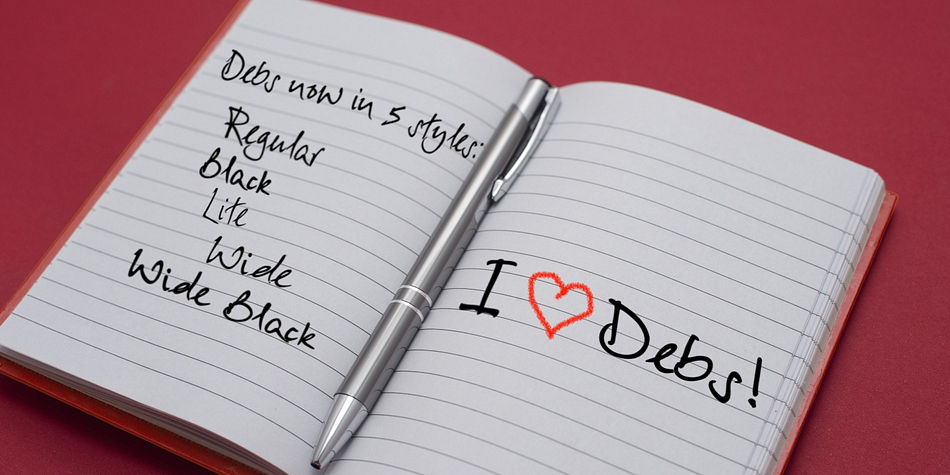 Debs now in 5 styles:
Regular
Black
Lite
Wide
Wide Black
I ❤ Debs!